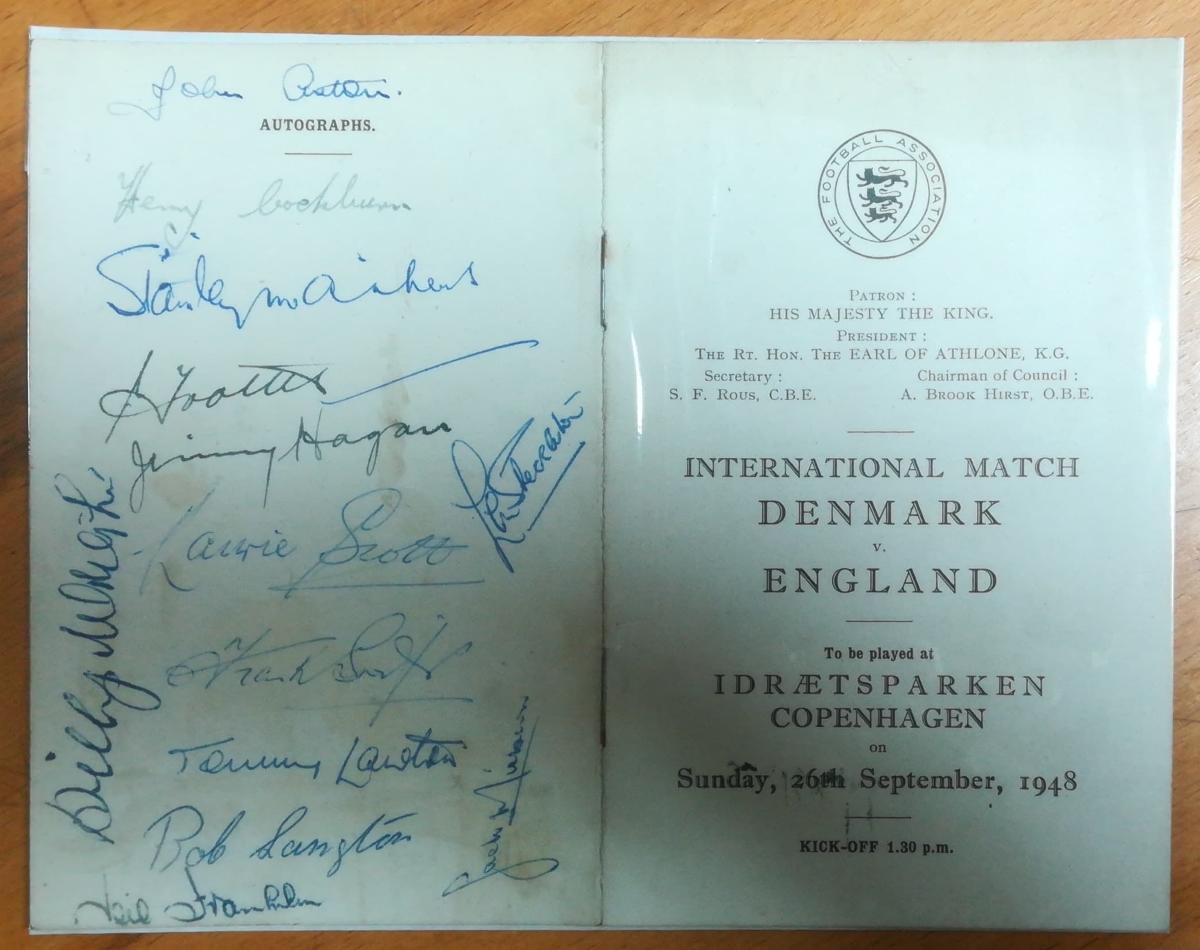 John Aston.
AUTOGRAPHS.
Henry Cockburn
Stanley Matthews
Jimmy Hagan
Laurie Scott
Frank Swift
Tommy Lawton
Bob Langton
Neil Franklin
Billy Wright.
Jack Milburn
THE FOOTBALL ASSOCIATION
PATRON :
HIS MAJESTY THE KING.
PRESIDENT :
THE RT. HON. THE EARL OF ATHLONE, K.G.
Secretary :
Chairman of Council :
S. F. ROUS, C.B.E.
A. BROOK HIRST, O.B.E.
INTERNATIONAL MATCH
DENMARK
v.
ENGLAND
To be played at
IDRÆTSPARKEN
COPENHAGEN
on
Sunday, 26th September, 1948
KICK-OFF 1.30 p.m.